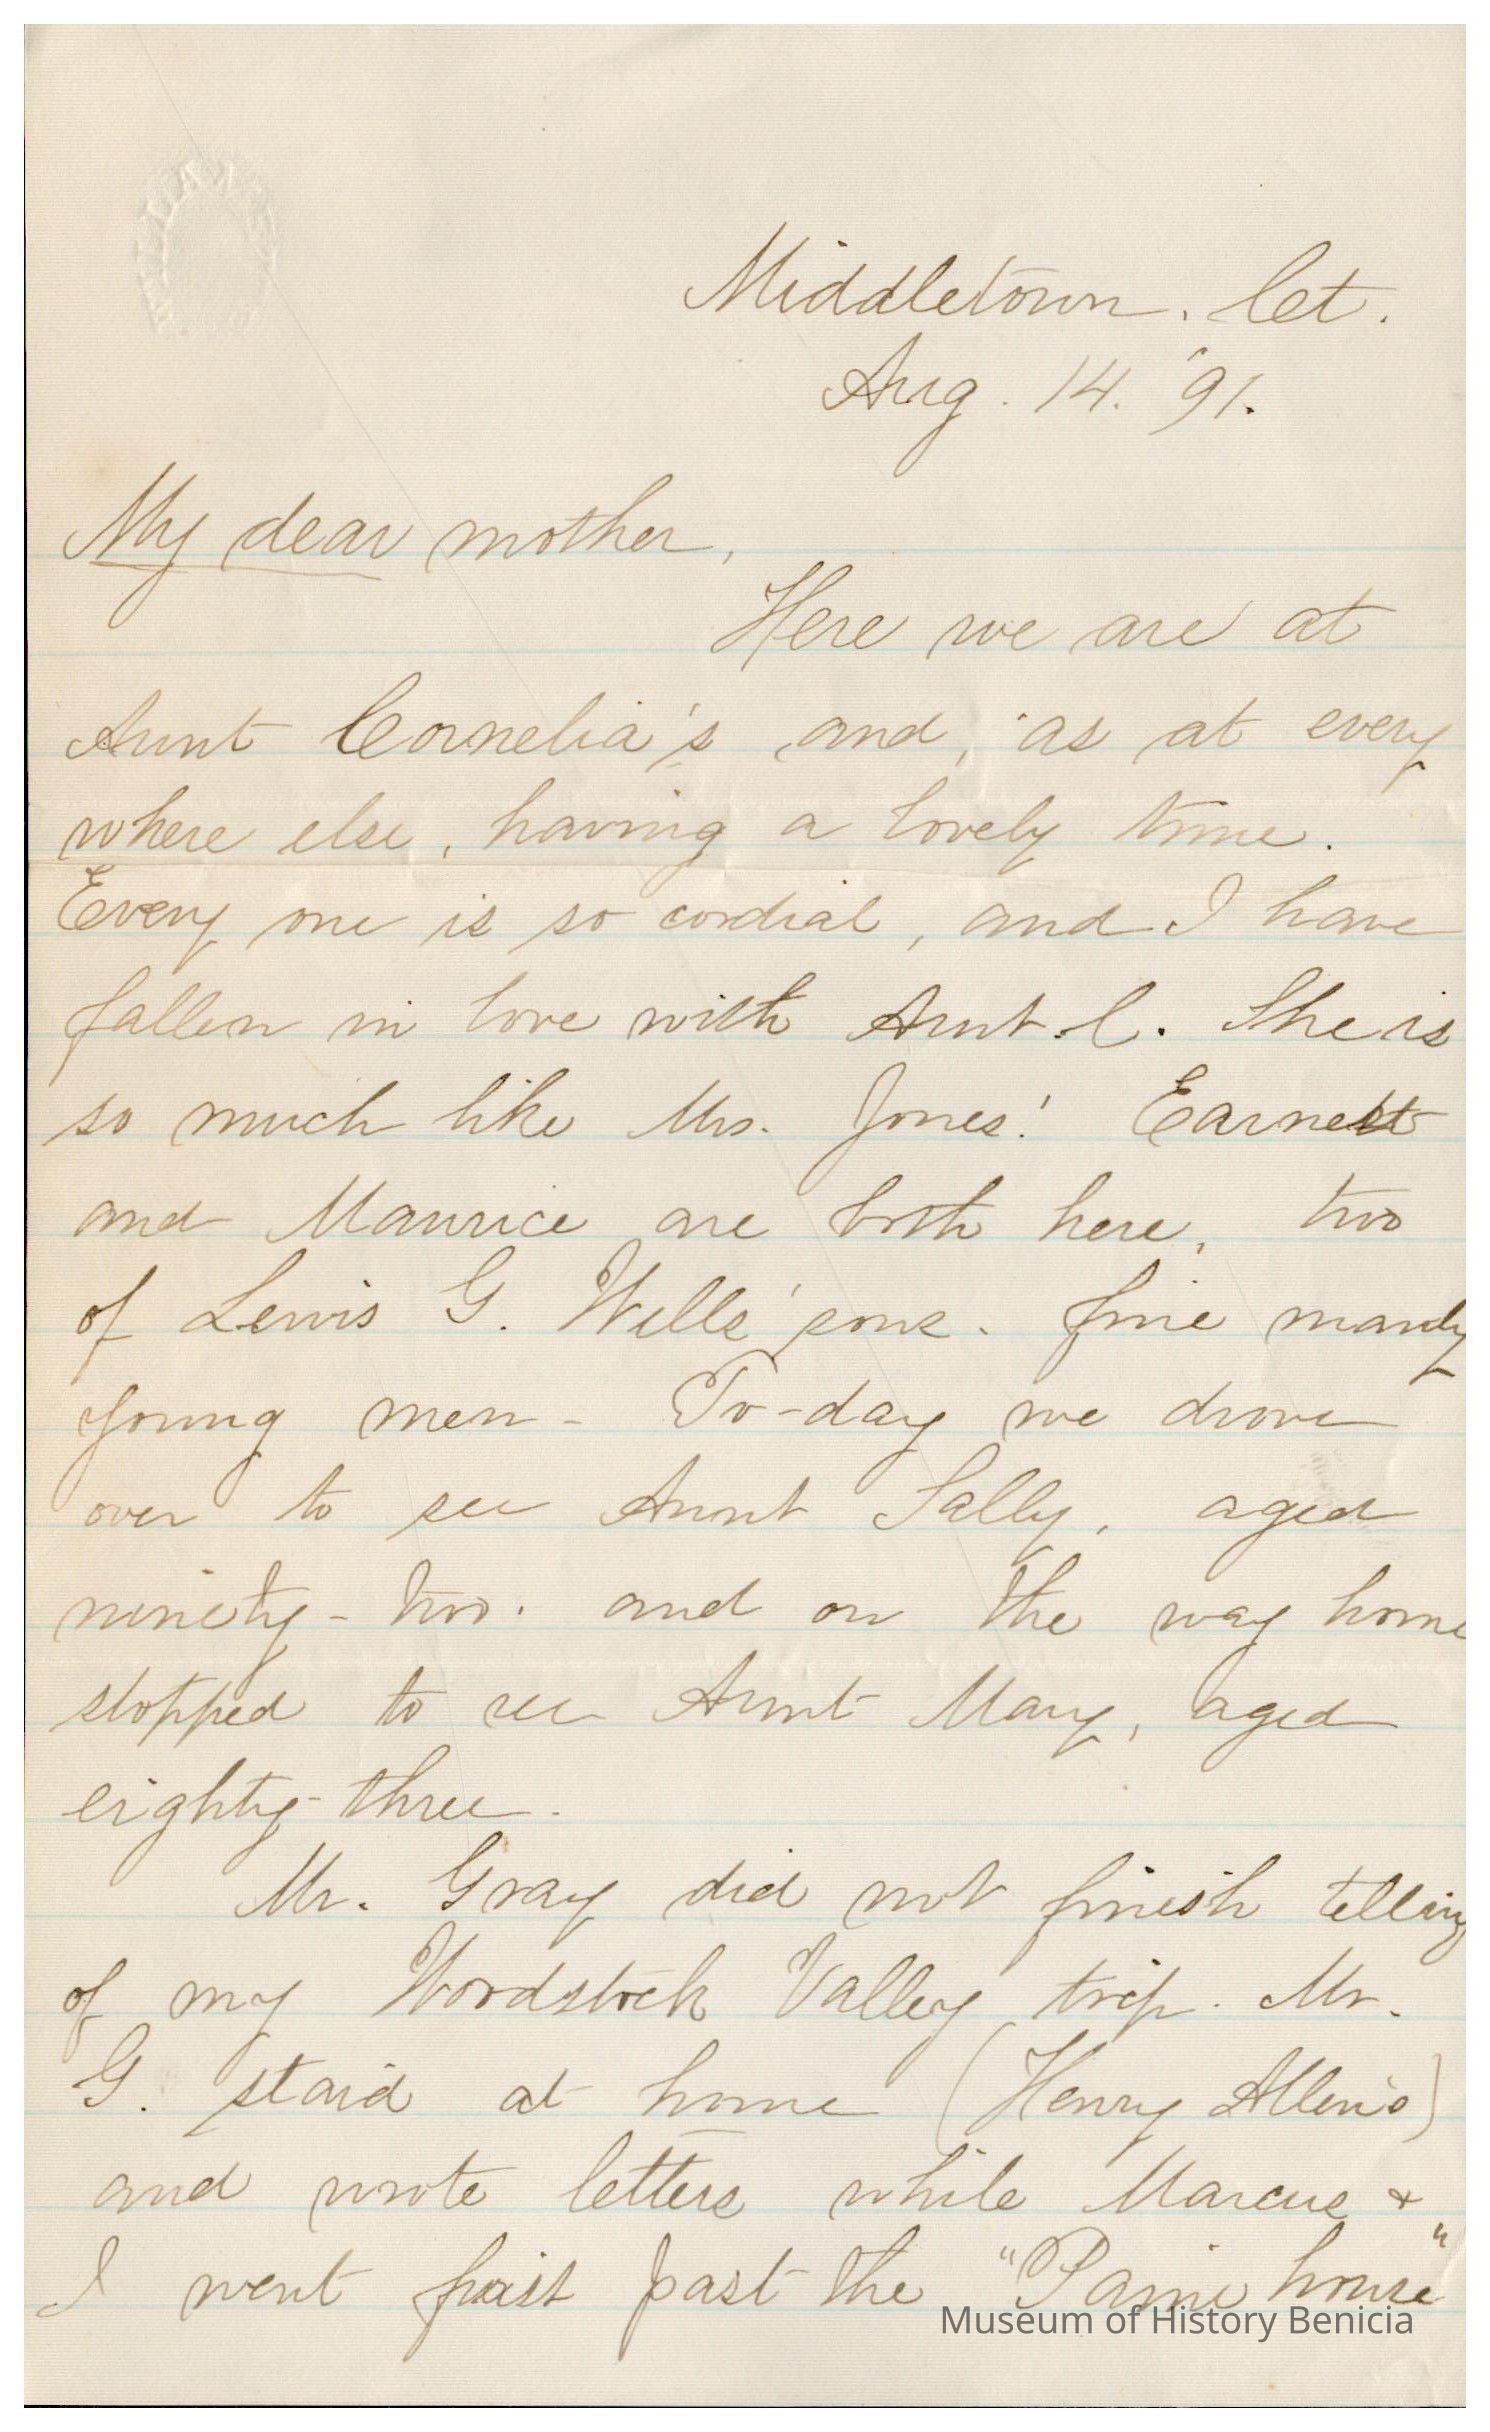 Middletown, Ct.
Aug. 14. '91.
My dear mother,
Here we are at
Aunt Cornelia's and, as at every
where else, having a lovely time.
Every one is so cordial, and I have
fallen in love with Aunt C. She is
so much like Mrs. Jones! Earnest
and Maurice are both here, two
of Lewis G. Wells' sons. fine manly
young men - To-day we drove
over to see Aunt Sally, aged
ninety-two. and on the way home
stopped to see Aunt Mary, aged
eighty-three.
Mr. Gray did not finish telling
of my Woodstock Valley trip. Mr.
G. staid at home (Henry Allen's)
and wrote letters while Marcus &
I went first past the "Paine house"
Museum of History Benicia